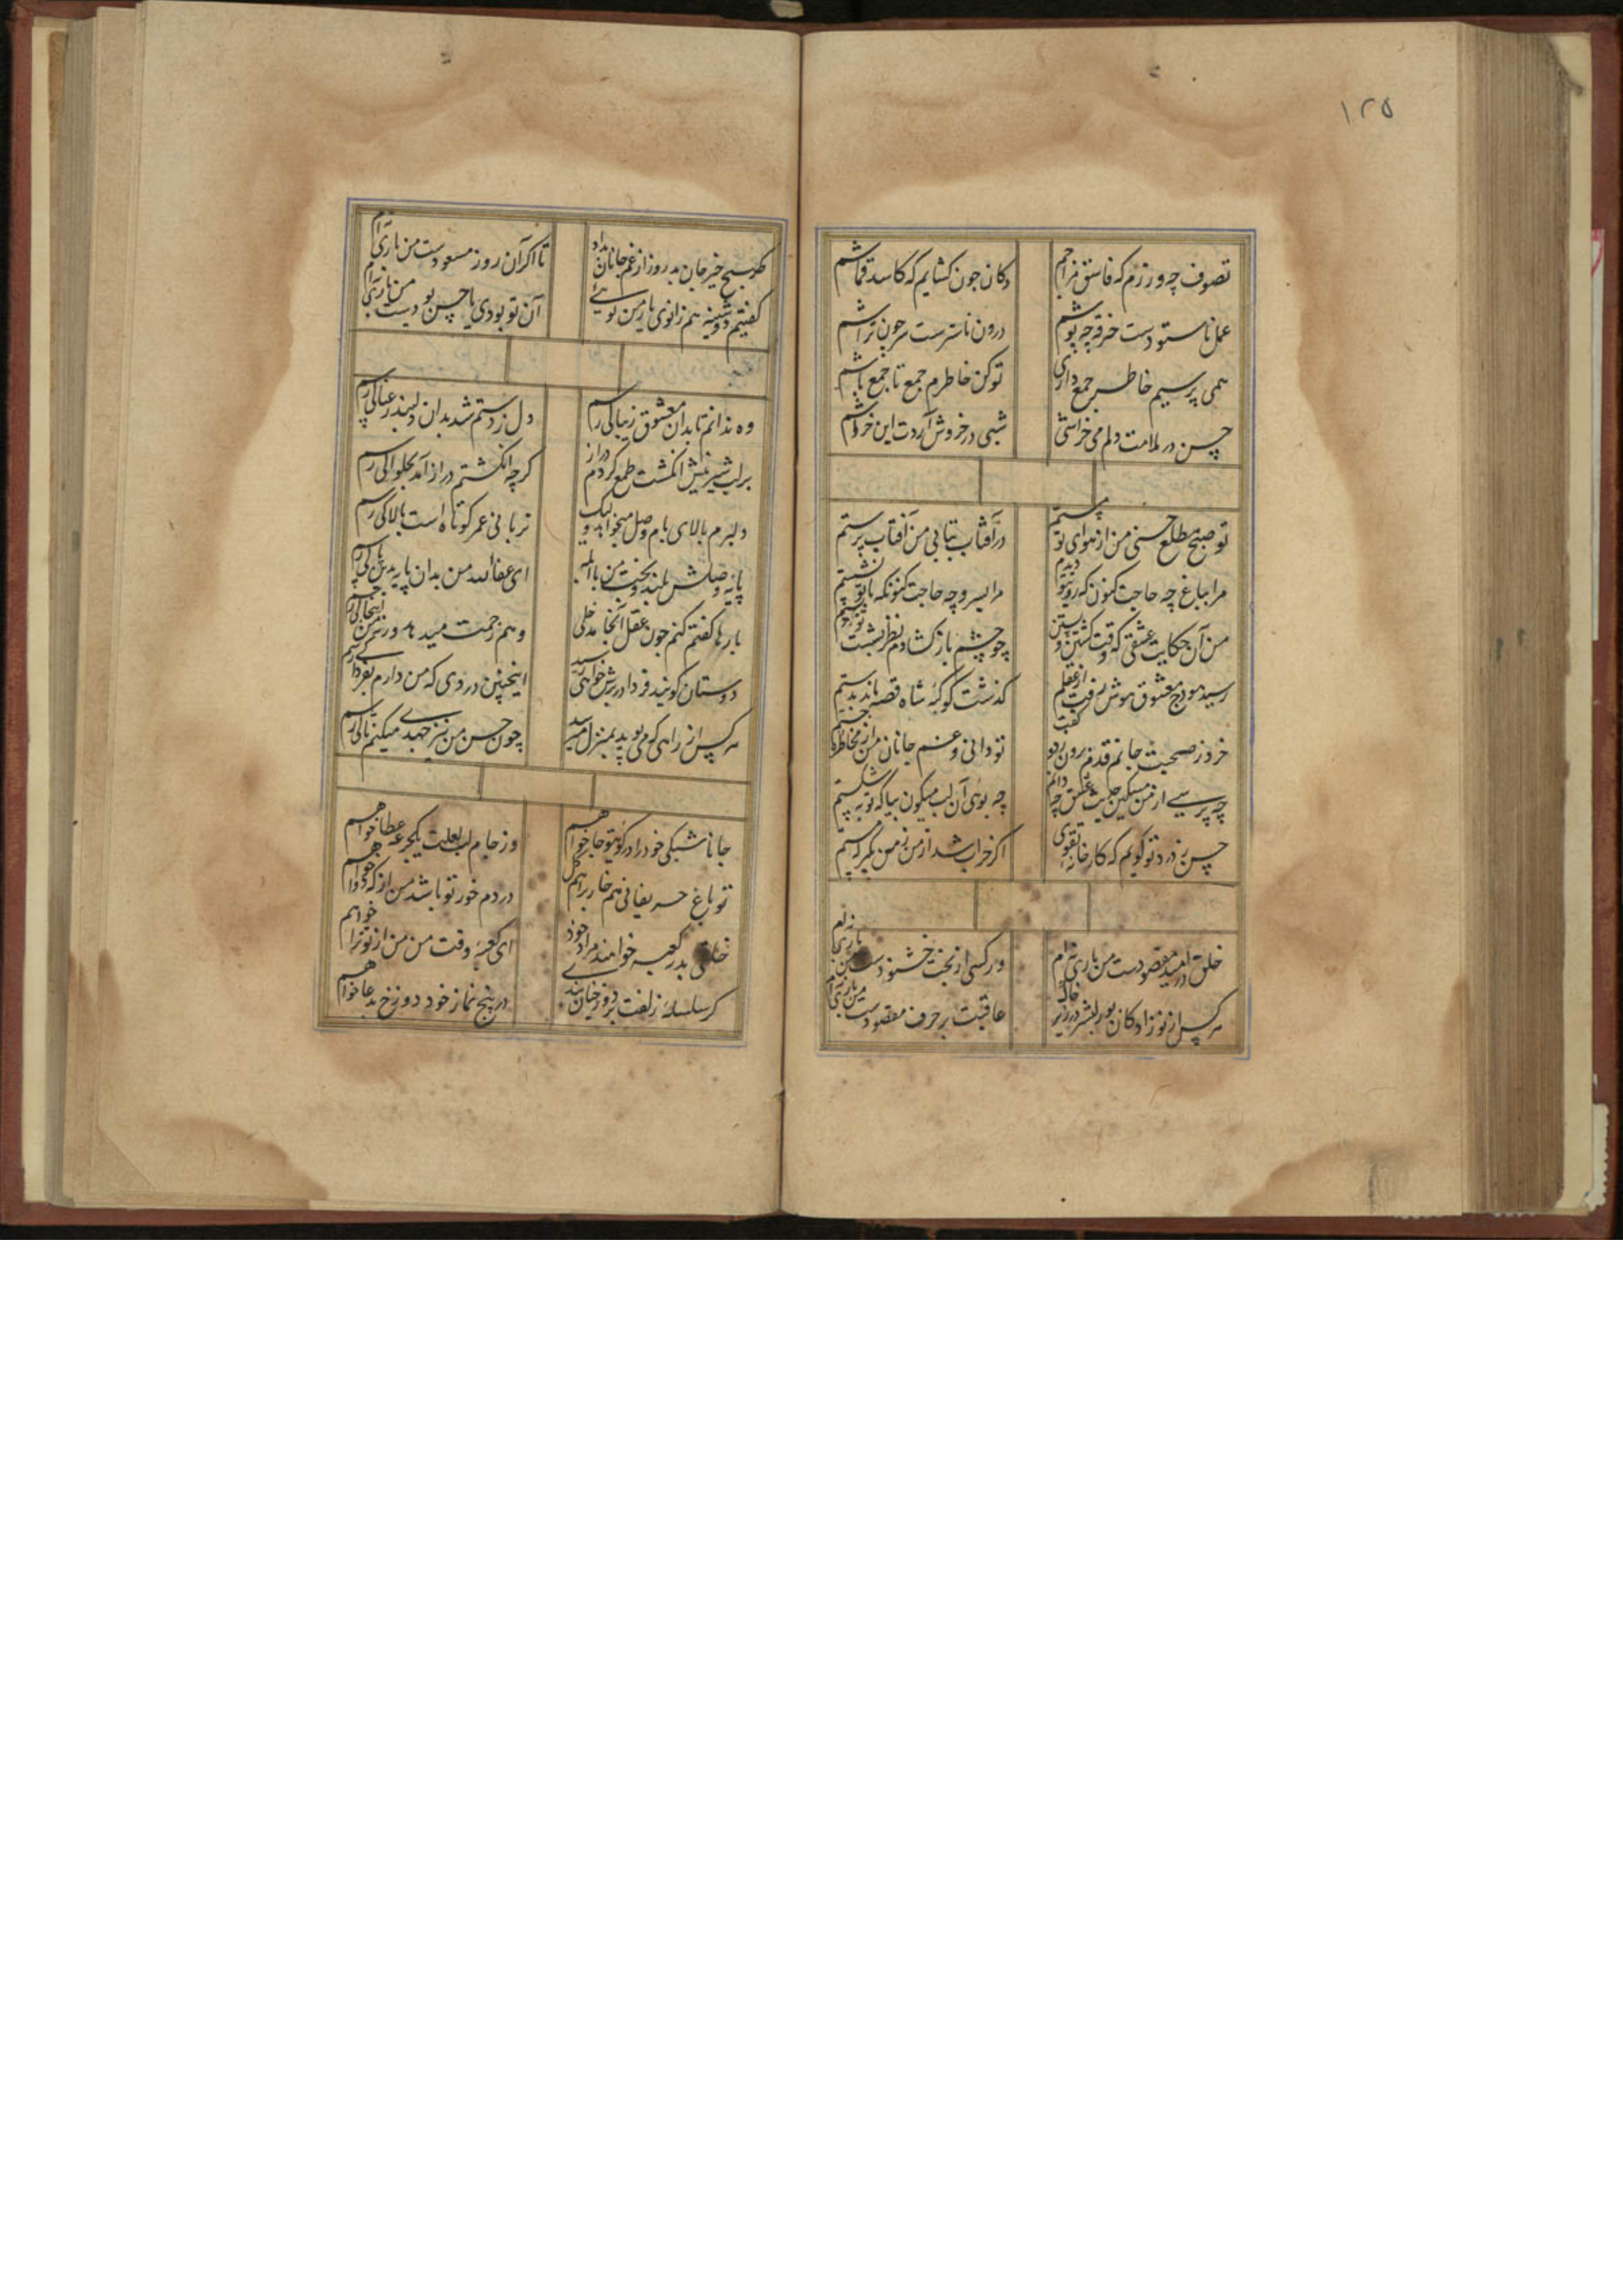 ۱۲۵
تصوف چه ورزم که فاسق مزاجم
دکان چون کشایم که کاسد قماشم
عمل ناستودست خرقه چه پوشم
درون ناسترست سر چون تراشم
همی پرسیم خاطر جمع داری
تو کن خاطرم جمع تا جمع باشم
حسن در ملامت دلم می خراشی
شبی در خروش آردت این خراشم
تو صبح مطلع حسنی من از هوای تو مستم
در آفتاب بتابی من آفتاب پرستم
مرا بباغ چه حاجت کنون که روی تو دیدم
مرا بسرو چه حاجت کنونکه با تو نشستم
من آن حکایت عشقی که وقت کشتن و بستن
چو چشم باز کشادم نظر نبست
رسید هودج معشوق هوش رفت از عقلم
گذشت کوکبهٔ شاه قصه ماند بدستم
خرد ز صحبت جانم قدم برون زد و گفت
تو دانی و غم جانان من از مخاطره جستم
چه پرسی از من مسکین حدیث عشق چه دانم
چه بوئی آن لب میگون بیا که توبه شکستم
حسن ز درد تو گویم که کارخانه تقوی
اگر خراب شد از من ز من مگیر که مستم
خلق در امید مقصودست من باری ترام
ور کسی از بخت خشنودست من باری ترام
هر کس از نوزادکان بو البشر در زیر خاک
عاقبت بر حرف مقصودست من باری ترام
هر صبح خیر جان بد روز از غم جانان بداد
تا اگر آن روز مسعودست من باری ترام
گفتیم دوشینه هم زانوی یار من توئی
آن تو بودی یا حسن بودست من باری ترام
وه ندانم تا بدان معشوق زیبا کی رسم
دل ز دستم شد بدان دلبند رعنا کی رسم
بر لب شیرینش انگشت طمع کردم دراز
گرچه انگشتم دراز آمد بحلوا کی رسم
دلبرم بالای بام وصل میخواند و لیک
نردبانی عمر کوتاه است بالا کی رسم
پایهٔ وصلش بلند و بخت من با
ای عفاالله من بدان پایه بدین پا کی رسم
بارها گفتم کنم چون عقل آنجا مدخلی
وهم زحمت میدهد ورنه من اینجا کی رسم
دوستان گویند فردا در برش خواهی رسید
اینچنین دردی که من دارم بفردا کی رسم
هر کس از راهی که می پوید بمنزل میرسد
چون حسن من نیز جهدی میکنم تا کی رسم
جانا شبکی خود را در کوی تو جا خواهم
وز جام لب لعلت یکجرعه عطا خواهم
تو باغ حریفانی هم خار برم هم گل
دردم خور تو باشد من از که دوا خواهم
خلقی بدر کعبه خواهند مراد خود
ای کعبهٔ وقت من من از تو ترا خواهم
گر سلسلهٔ زلفت بر دوزخیان بندی
در پنج نماز خود دوزخ بدعا خواهم